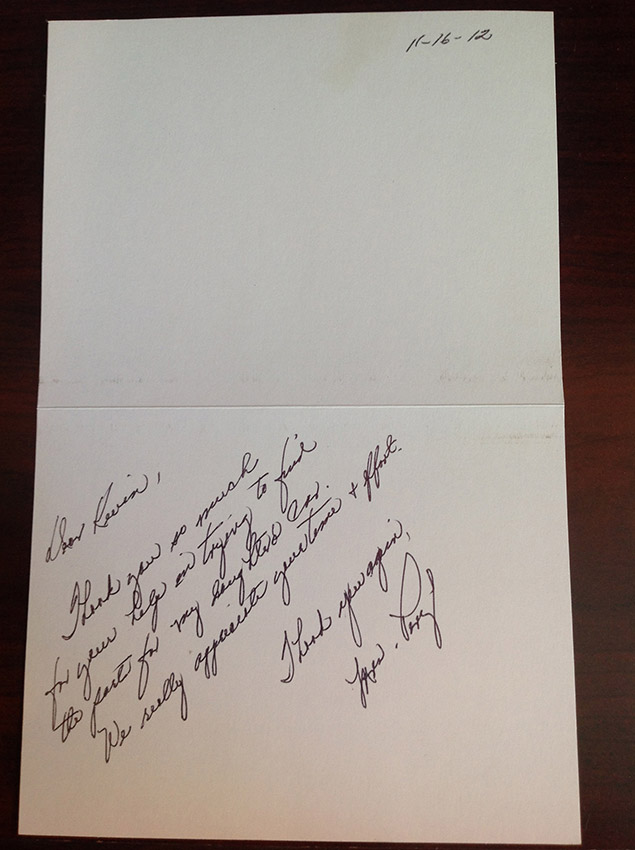 11-16-12
Dear Kevin,
Thank you so much
for your help in trying to find
the part for my daughter's car.
We really appreciate your time & effort.
Thank you again,
Mrs.